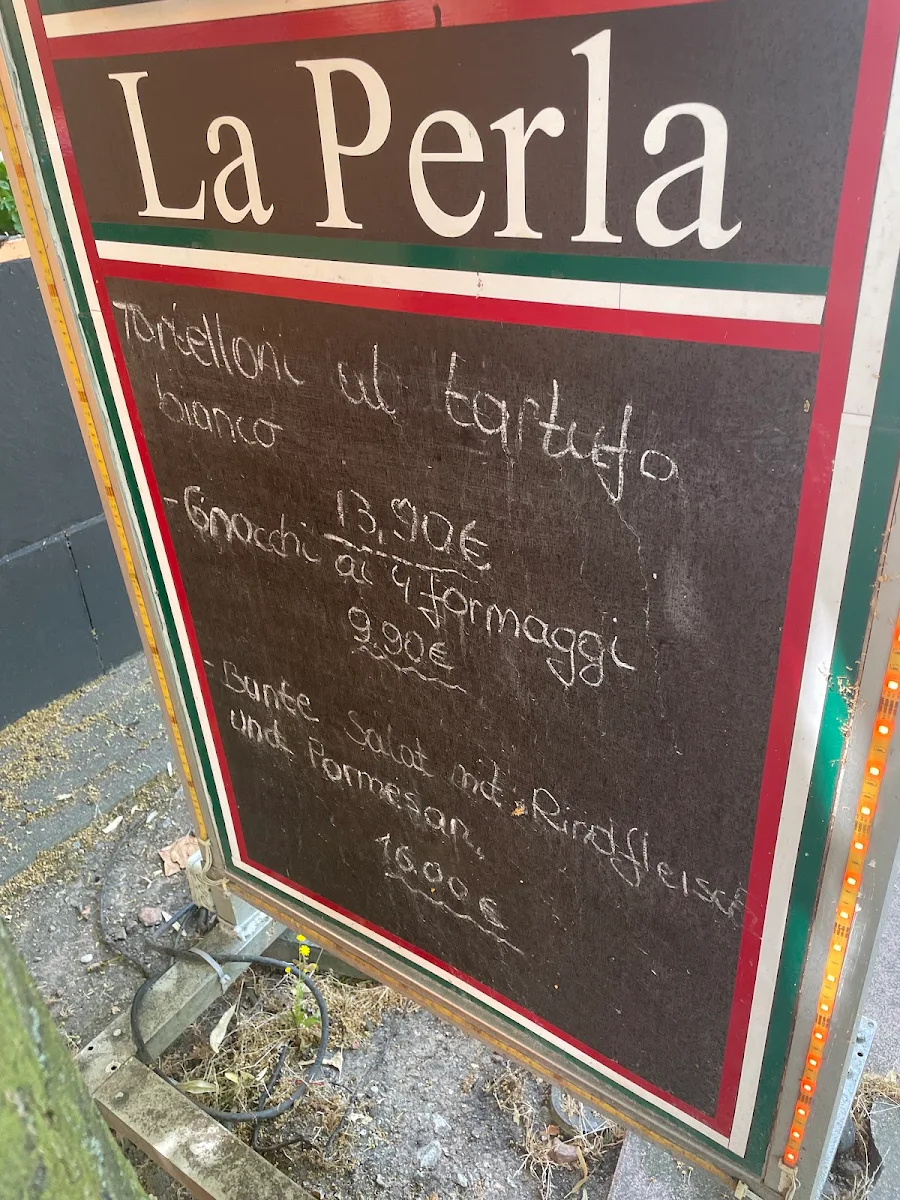 La Perla
Tortelloni al tartufo
bianco
13,90€
- Gnocchi ai 4 formaggi
9,90€
- Bunte Salat mit Rindfleisch
und Parmesan,
16,00 €